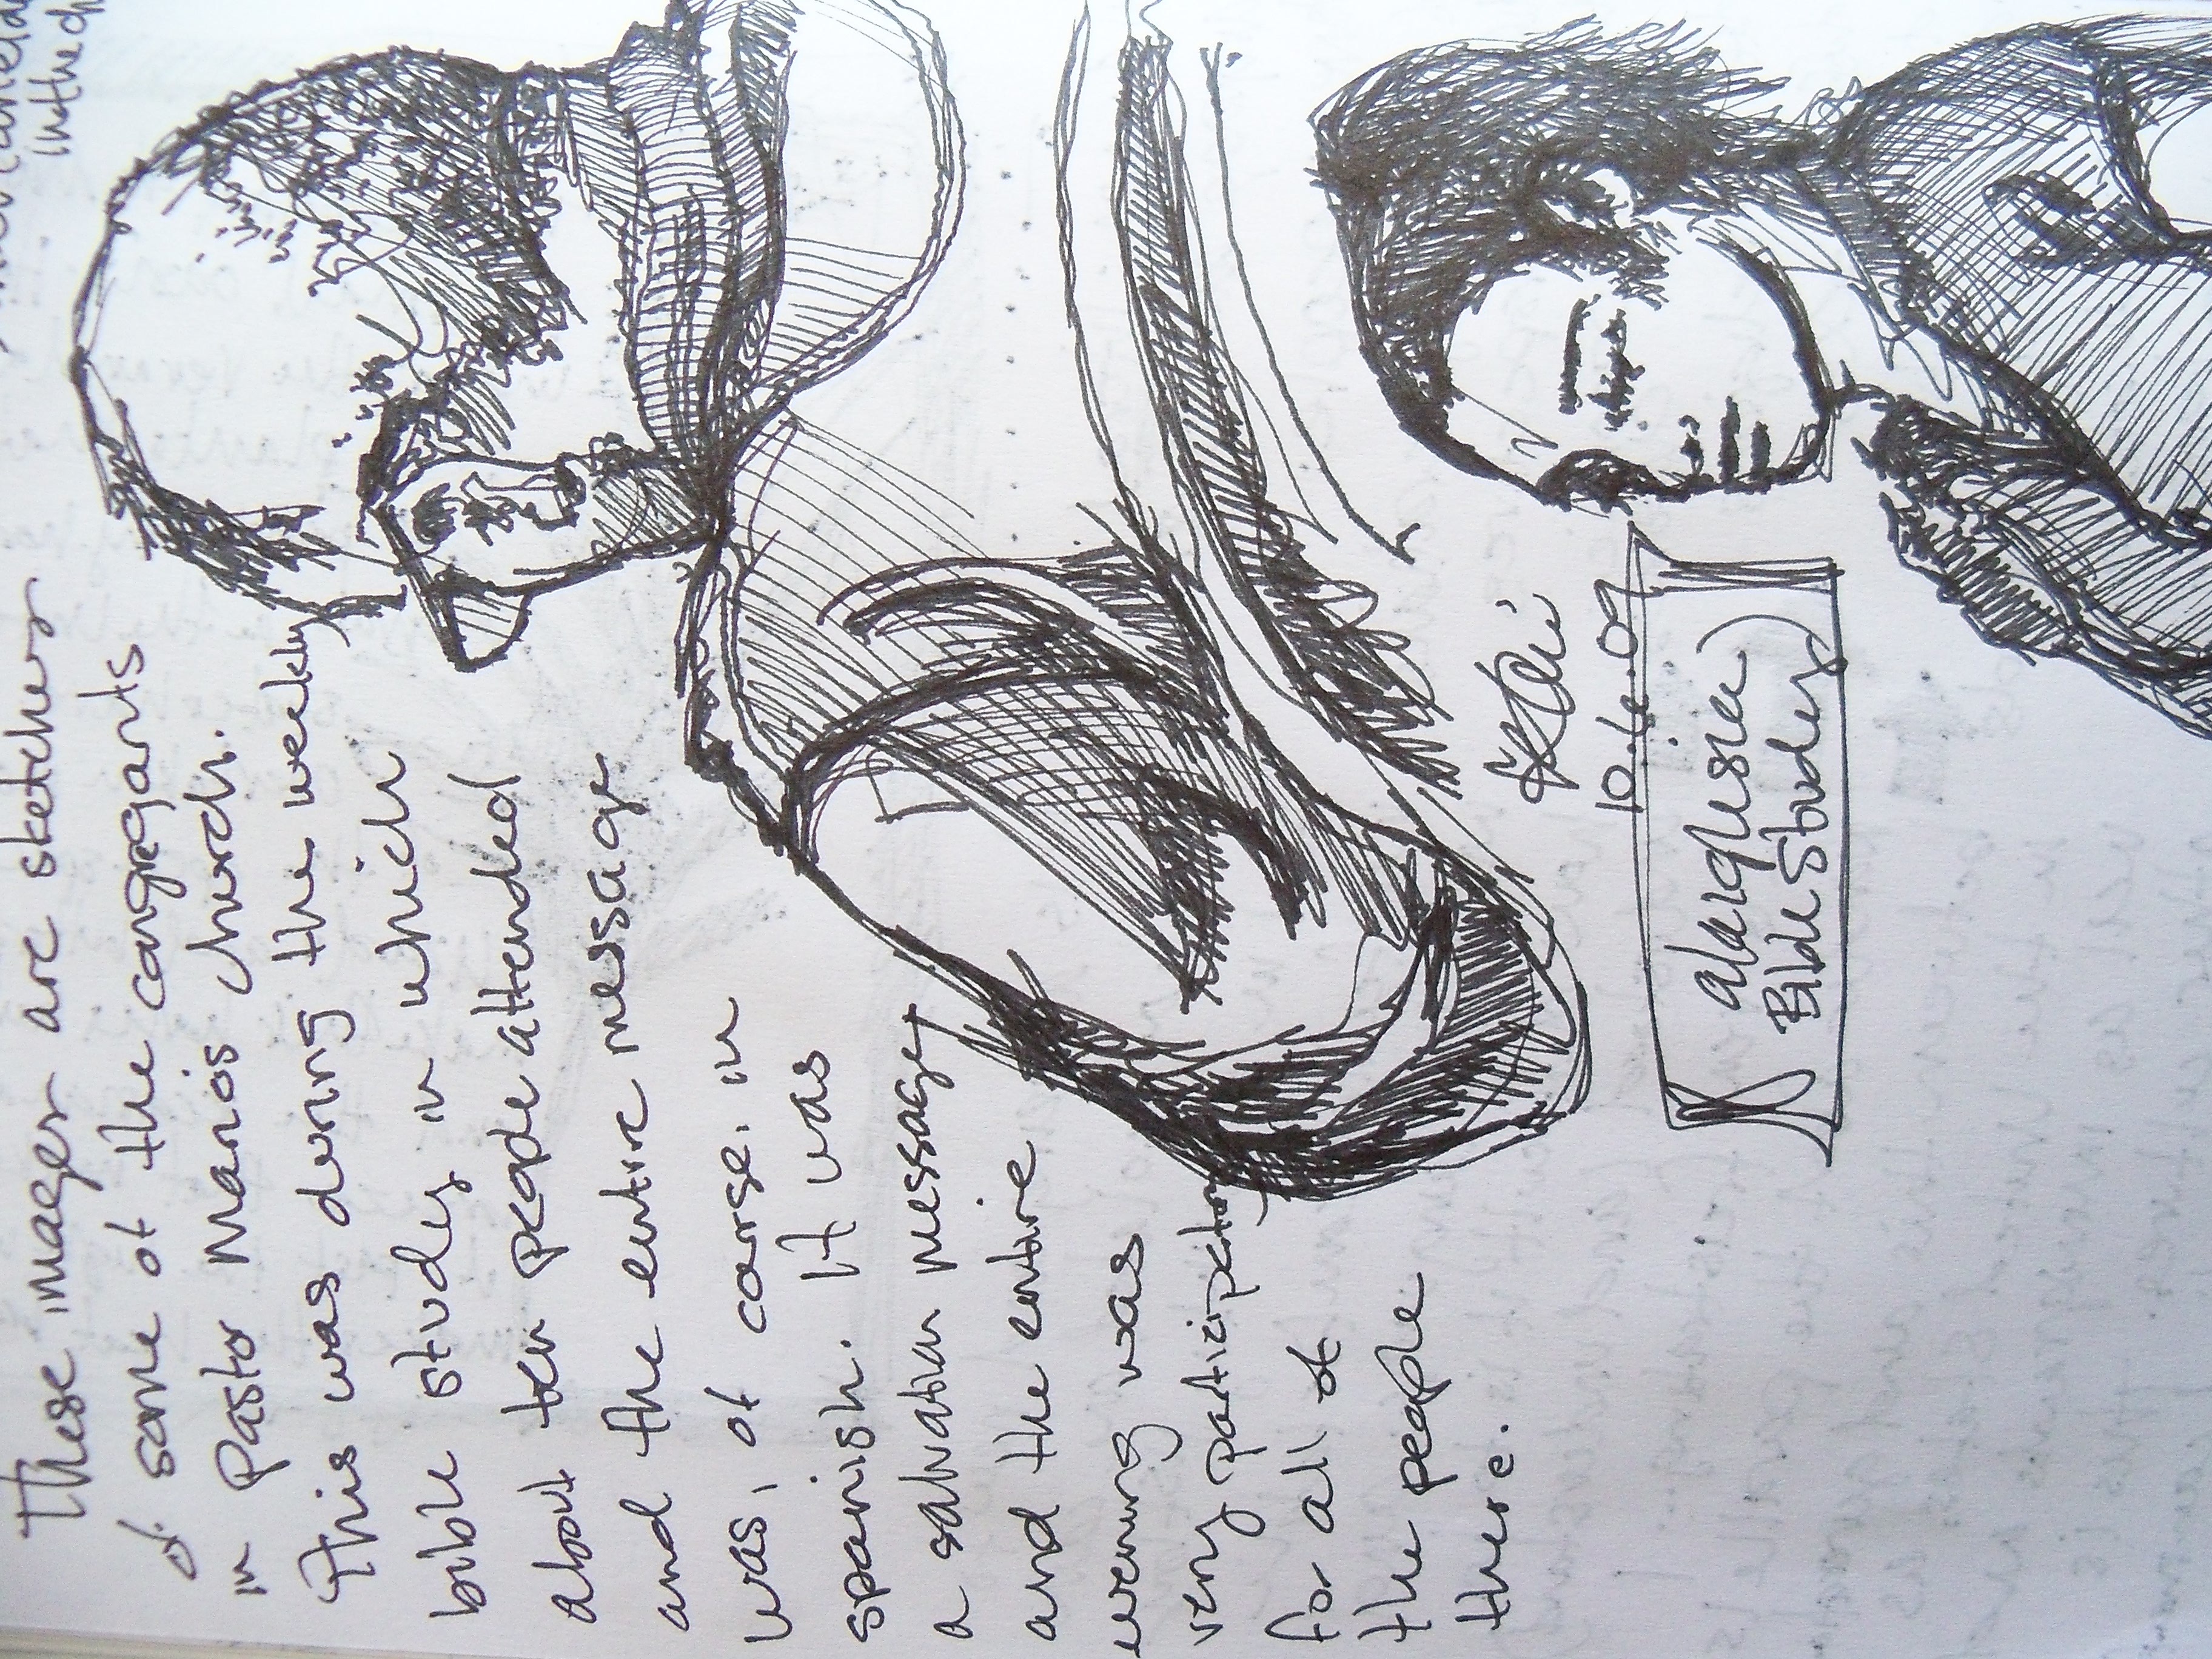 These images are sketches
of some of the congregants
in Pastor Mario's church.
This was during the weekly
bible study in which
about ten people attended
and the entire message
was, of corse, in
spanish. It was
a salvation message
and the entire
evening was
very partizipatory
for all of
the people
there.
10.6.09
Bible Study
in the ch